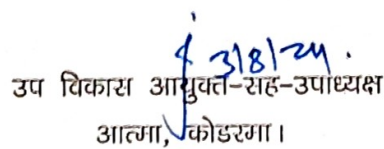 3/8/24.
उप विकास आयुक्त-सह-उपाध्यक्ष
आत्मा, कोडरमा।